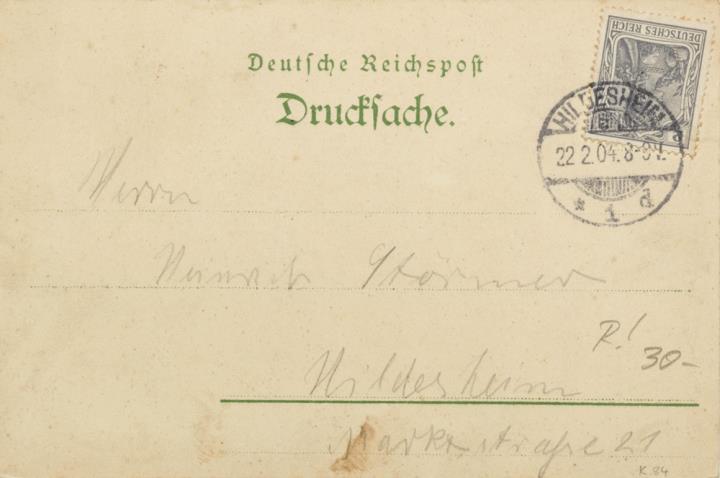 DEUTSCHES REICH
Deutsche Reichspost
Drucksache.
HILDESHEIM
22.2.04.8-9V.
* 1 d
Herrn
Heinrich Störmer
R! 30-
Hildesheim
Marktstraße 21
K.84